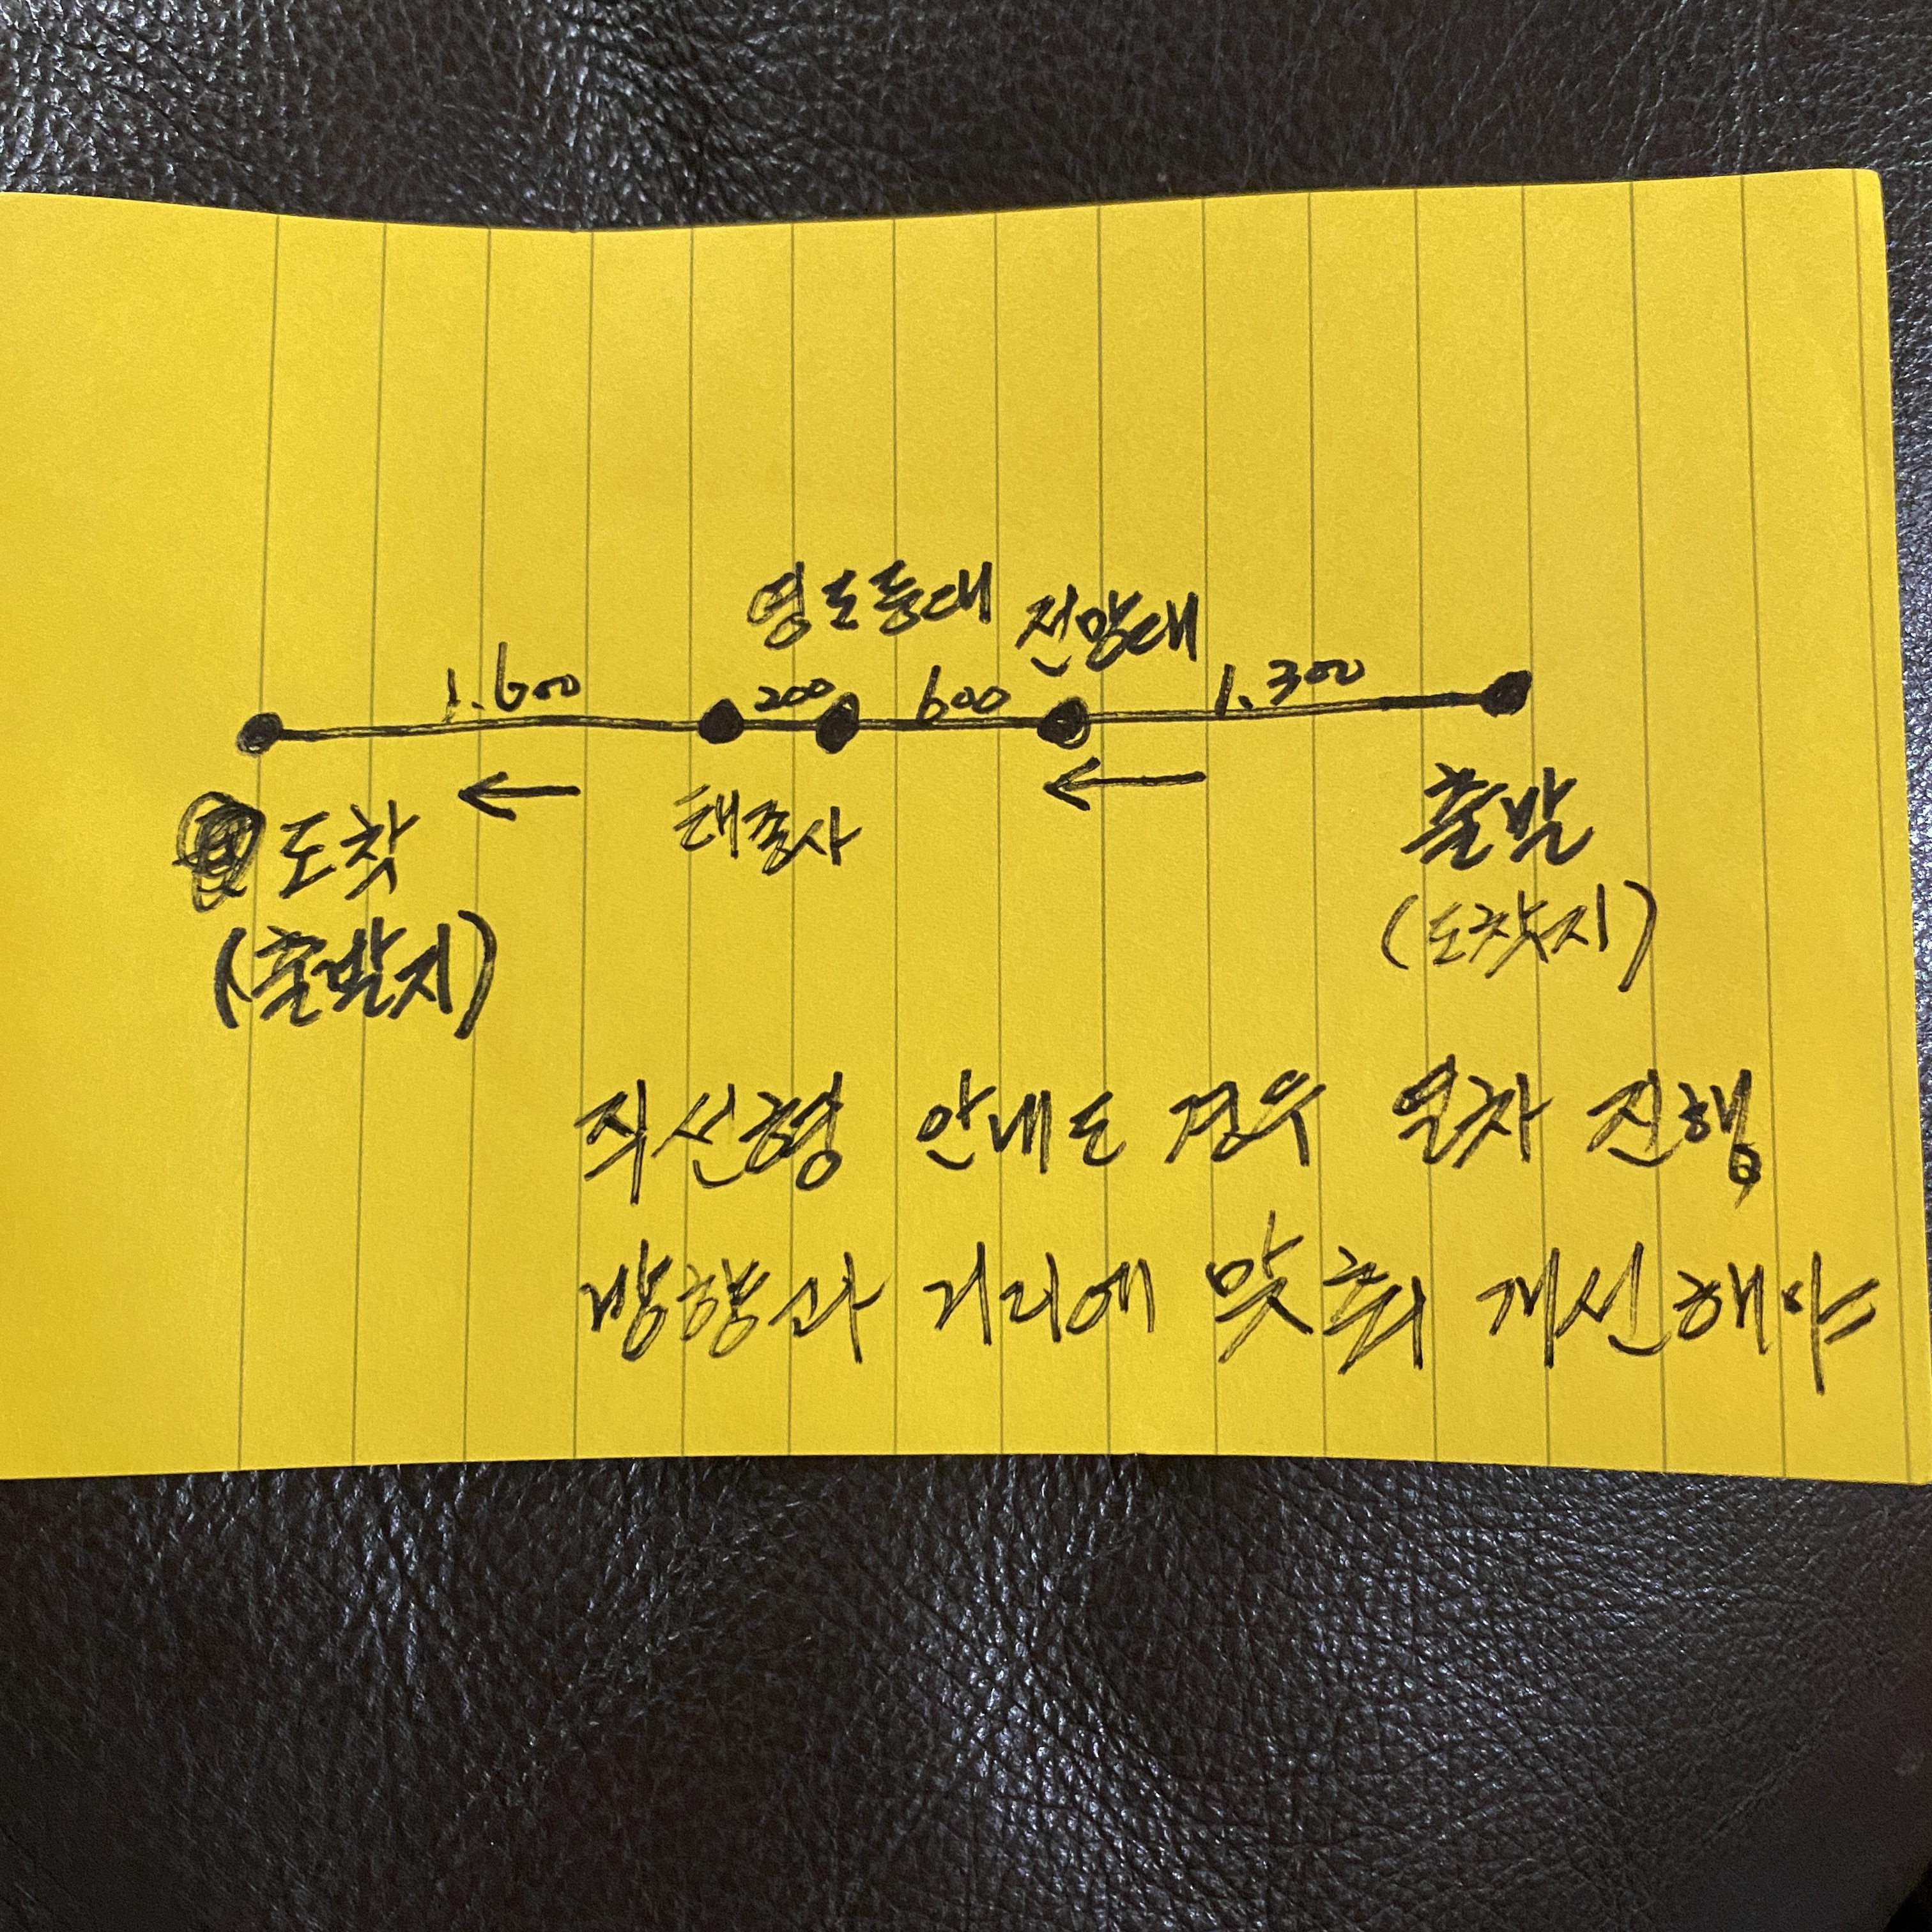 영도등대 전망대
1.600 200 600 1.300
도착 태종사 출발
(출발지) (도착지)
직선형 안내도 경우 열차 진행
방향과 거리에 맞춰 개선해야